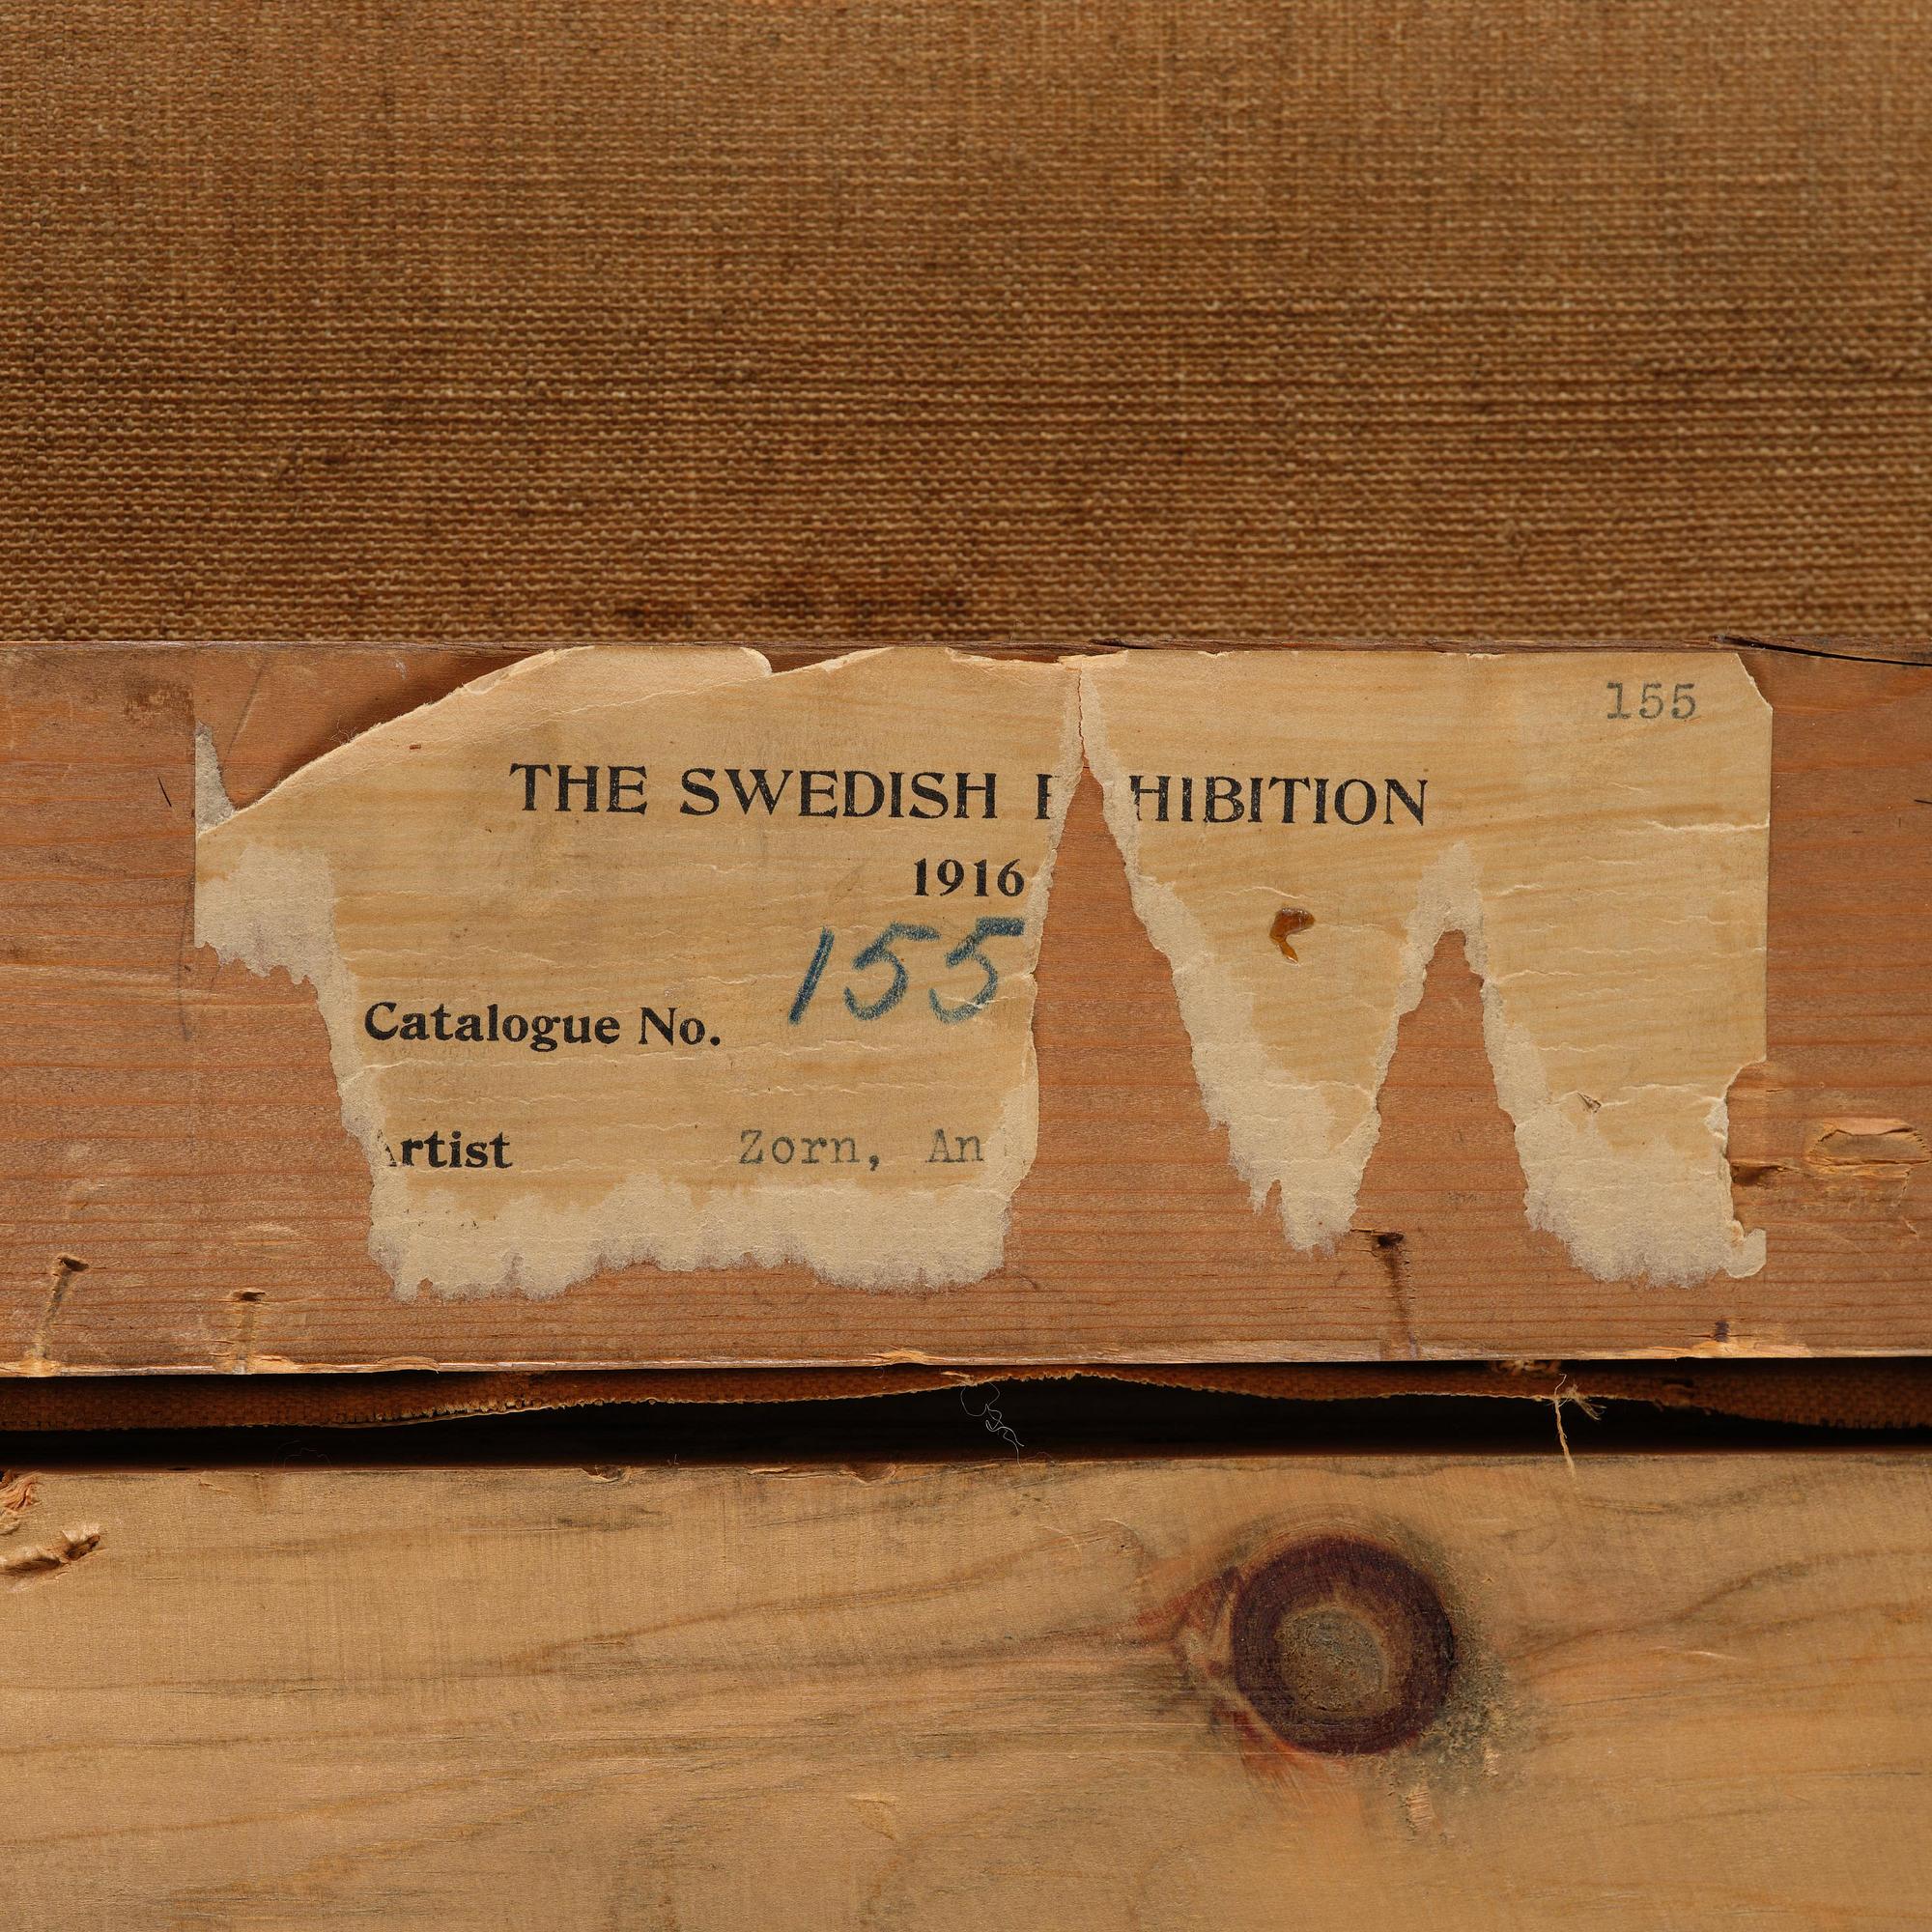 155
THE SWEDISH E HIBITION
1916
155
Catalogue No.
rtist Zorn, An